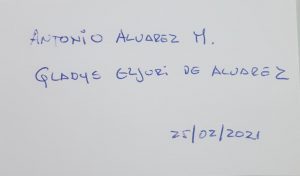 Antonio Alvarez M.
Gladys Eljuri de Alvarez
25/02/2021